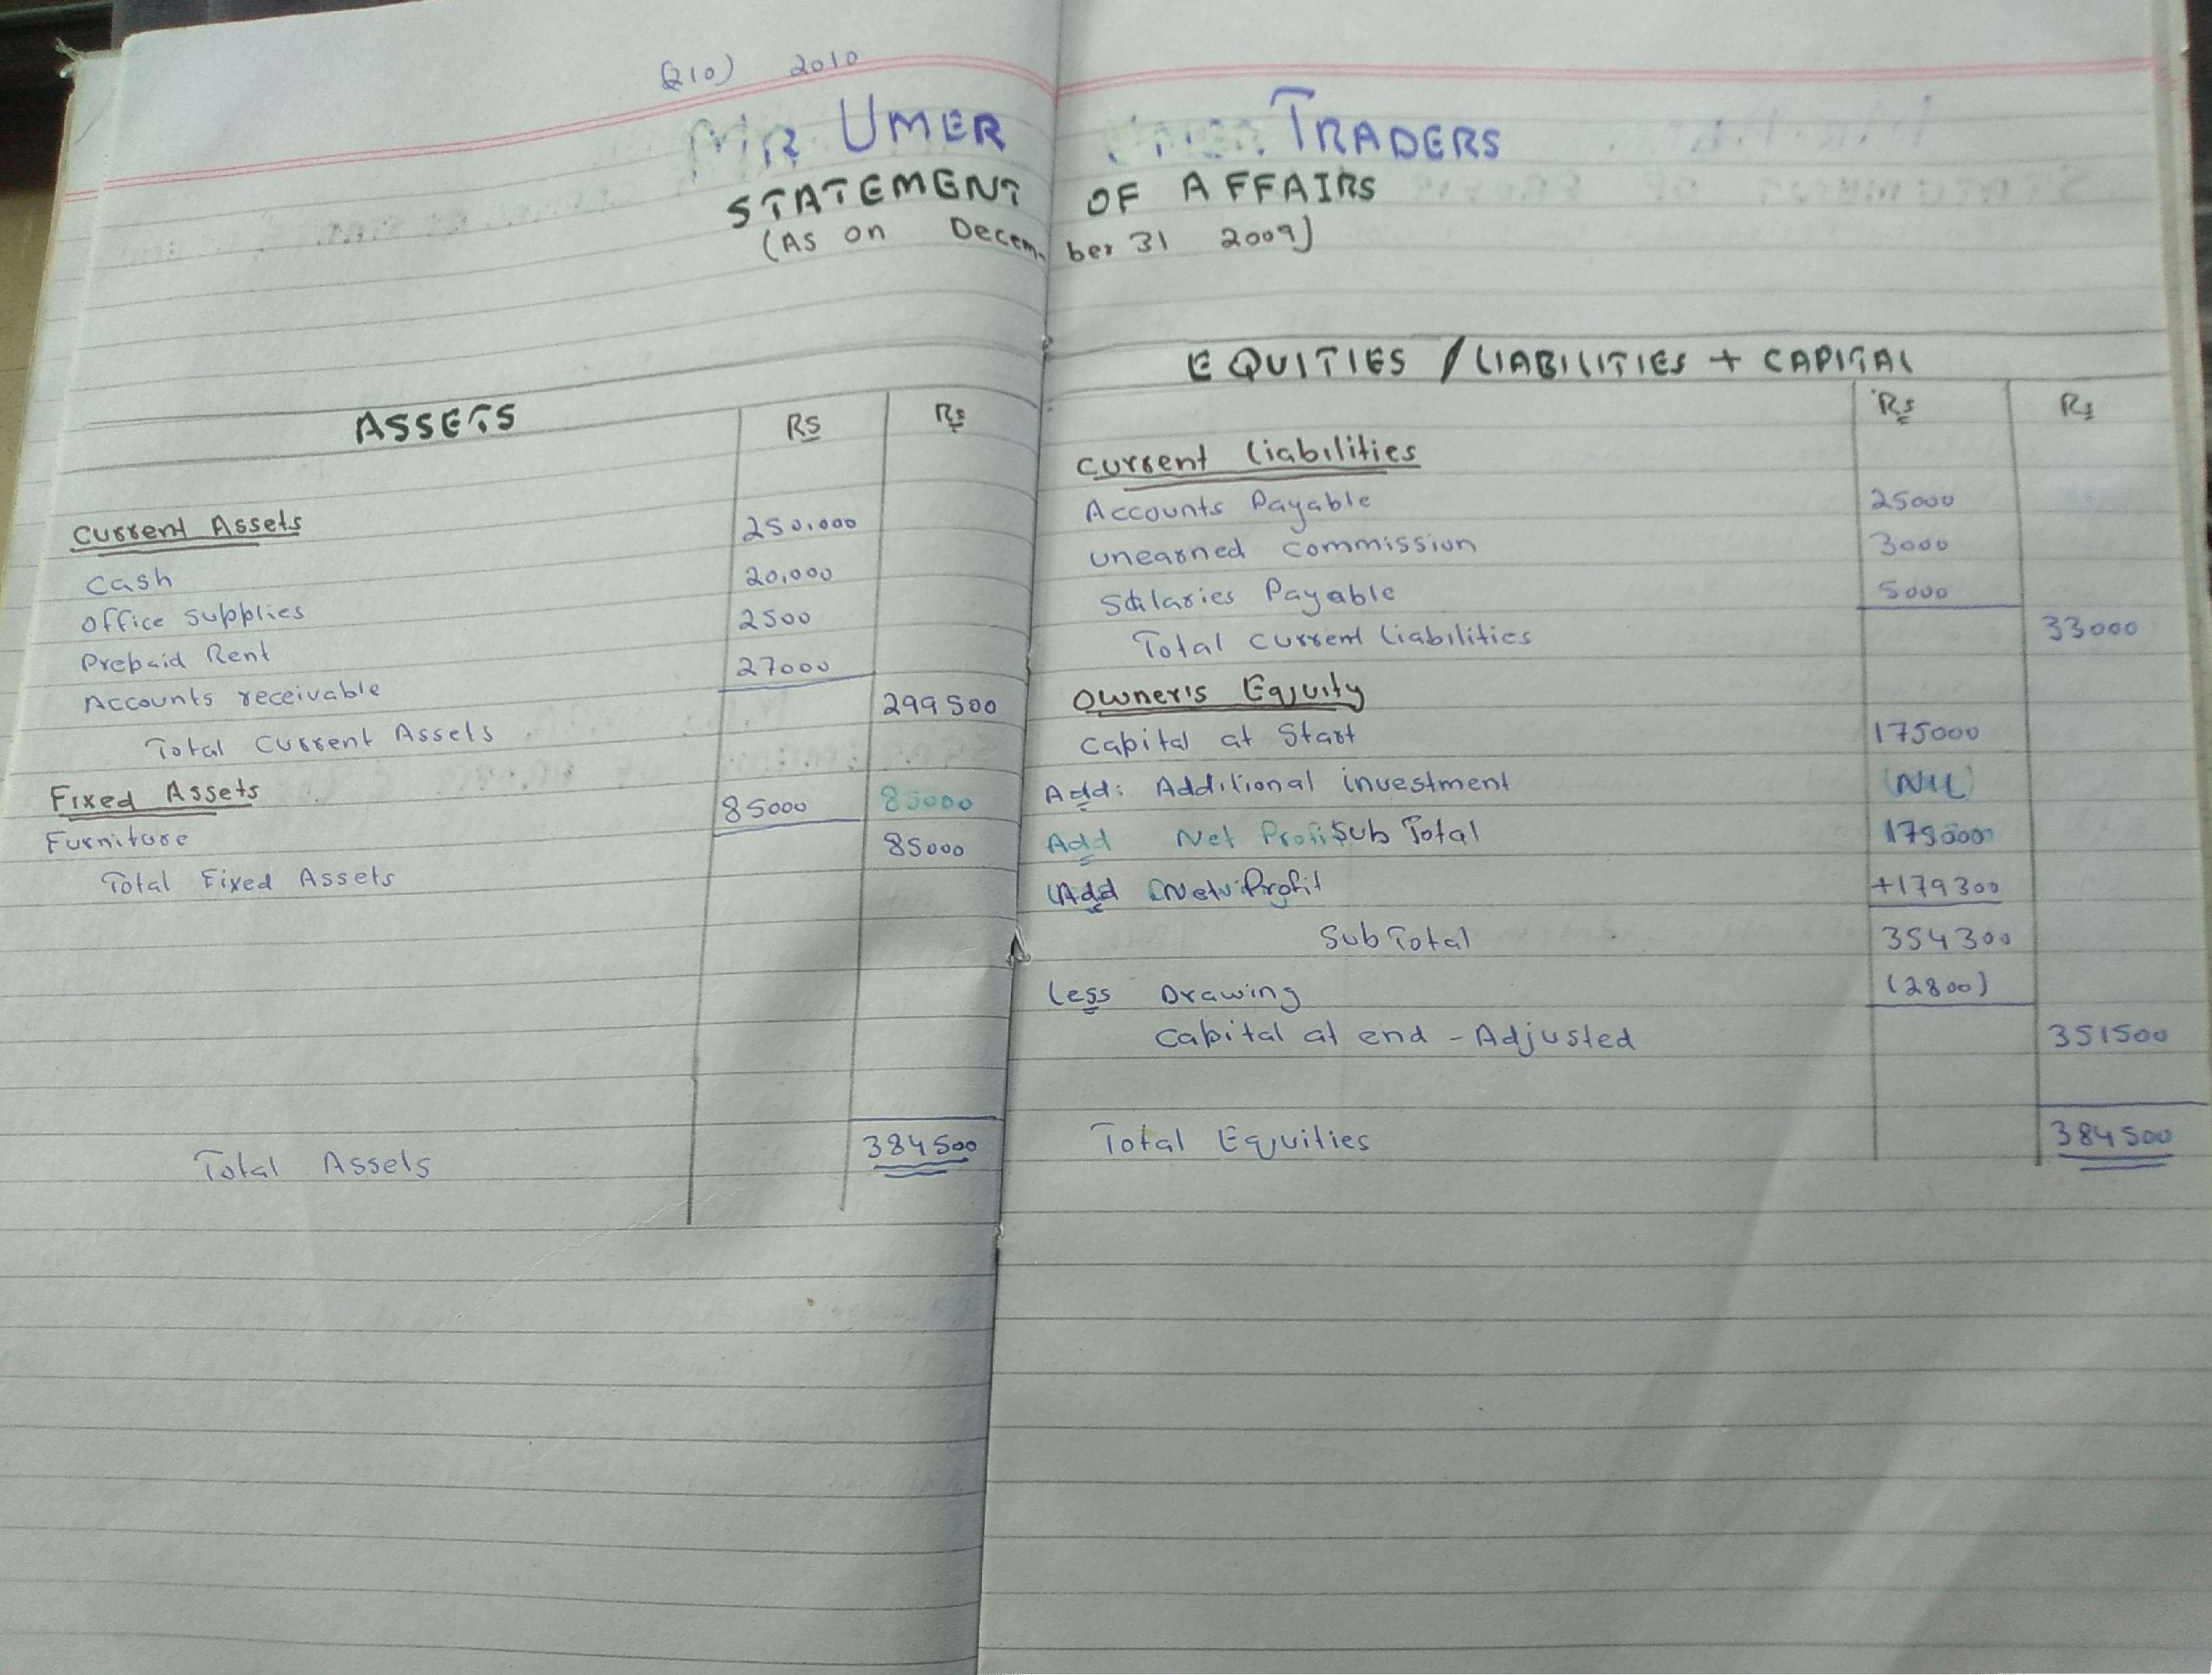 (Q10) 2010
MR UMER TRADERS
STATEMENT OF AFFAIRS
(As on Decem- ber 31 2009)
ASSETS Rs Rs
Current Assets 250,000
Cash 20,000
Office Supplies 2500
Prepaid Rent 27000
Accounts receivable
Total Current Assets 299500
Fixed Assets 85000 85000
Furniture 85000
Total Fixed Assets
Total Assets 384500
EQUITIES / LIABILITIES + CAPITAL
Rs Rs
Current Liabilities
Accounts Payable 25000
unearned commission 3000
Salaries Payable 5000
Total Current Liabilities 33000
Owner's Equity
Capital at Start 175000
Add: Additional investment (NIL)
Add Net Profit Sub Total 175000
Add Net Profit +179300
Sub Total 354300
Less Drawing (2800)
Capital at end - Adjusted 351500
Total Equities 384500